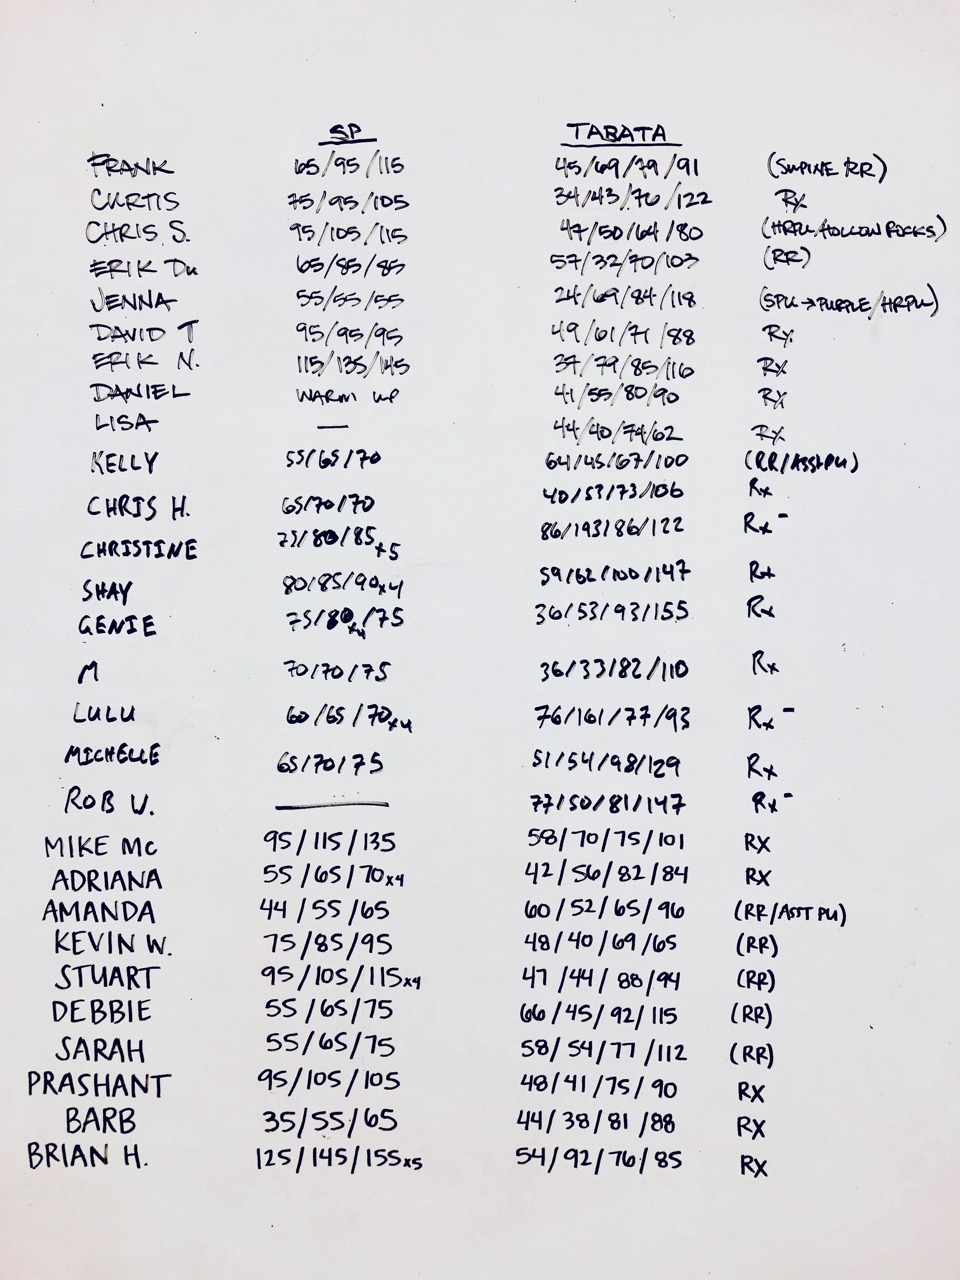 SP TABATA
FRANK 65/95/115 45/69/79/91 (SUPINE RR)
CURTIS 75/95/105 34/43/76/122 Rx
CHRIS S. 95/105/115 47/50/64/80 (HRPU/HOLLOW ROCKS)
ERIK Du 65/85/85 57/32/70/103 (RR)
JENNA 55/55/55 24/69/84/118 (SPU→PURPLE/HRPU)
DAVID T 95/95/95 49/61/71/88 Rx
ERIK N. 115/135/145 37/79/85/116 Rx
DANIEL WARM UP 41/55/80/90 Rx
LISA — 44/40/74/62 Rx
KELLY 55/65/70 64/45/67/100 (RR/ASST PU)
CHRIS H. 65/70/70 40/53/73/106 Rx
CHRISTINE 75/80/85x5 86/193/86/122 Rx-
SHAY 80/85/90x4 59/62/100/147 Rx
GENIE 75/80x4/75 36/53/93/155 Rx
M 70/70/75 36/33/82/110 Rx
LULU 60/65/70x4 76/161/77/93 Rx-
MICHELLE 65/70/75 51/54/98/129 Rx
ROB V. — 77/50/81/147 Rx-
MIKE Mc 95/115/135 58/70/75/101 RX
ADRIANA 55/65/70x4 42/56/82/84 RX
AMANDA 44/55/65 60/52/65/96 (RR/ASST PU)
KEVIN W. 75/85/95 48/40/69/65 (RR)
STUART 95/105/115x4 47/44/88/94 (RR)
DEBBIE 55/65/75 66/45/92/115 (RR)
SARAH 55/65/75 58/54/77/112 (RR)
PRASHANT 95/105/105 48/41/75/90 RX
BARB 35/55/65 44/38/81/88 RX
BRIAN H. 125/145/155x5 54/92/76/85 RX